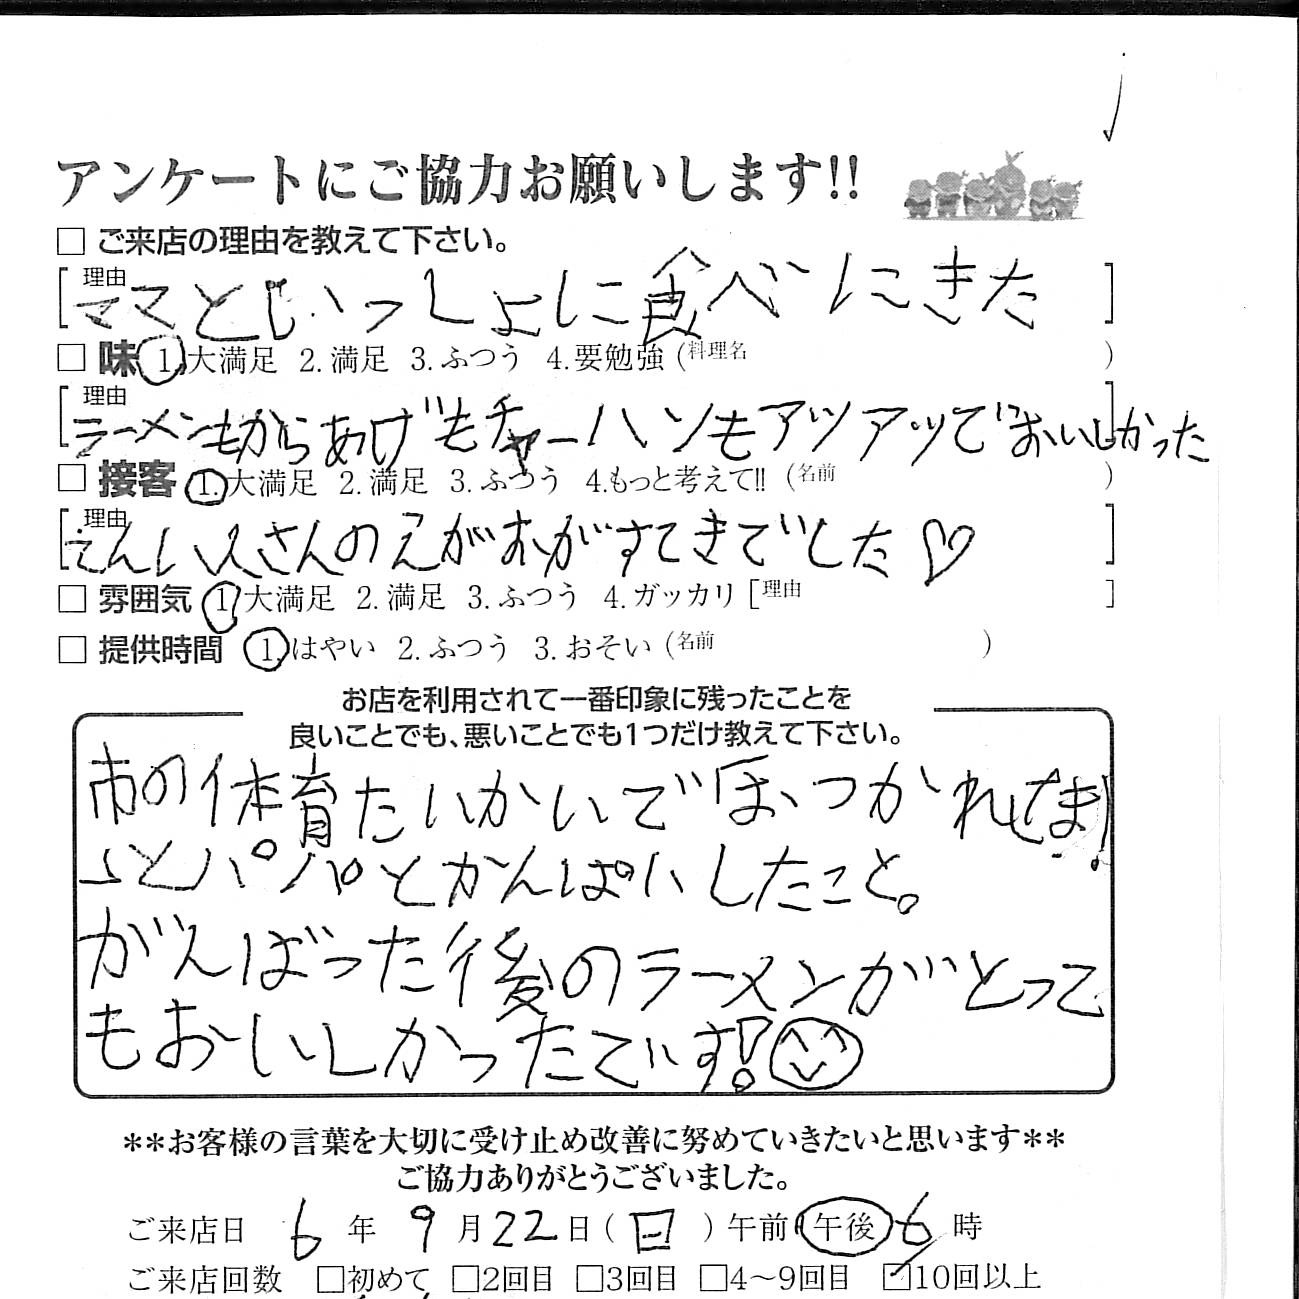 アンケートにご協力お願いします!!
□ ご来店の理由を教えて下さい。
[理由 ママといっしょに食べにきた ]
□ 味 1.大満足 2.満足 3.ふつう 4.要勉強(料理名 )
[理由 ラーメンもからあげもチャーハンもアツアツでおいしかった ]
□ 接客 1.大満足 2.満足 3.ふつう 4.もっと考えて!!(名前 )
[理由 てんいんさんのえがおがすてきでした♡ ]
□ 雰囲気 1.大満足 2.満足 3.ふつう 4.ガッカリ[理由 ]
□ 提供時間 1.はやい 2.ふつう 3.おそい(名前 )
お店を利用されて一番印象に残ったことを
良いことでも、悪いことでも1つだけ教えて下さい。
市の体育たいかいでおつかれさま!
とパパとかんぱいしたこと。
がんばった後のラーメンがとって
もおいしかったです!
**お客様の言葉を大切に受け止め改善に努めていきたいと思います**
ご協力ありがとうございました。
ご来店日 6年 9月22日(日)午前・午後 6時
ご来店回数 □初めて □2回目 □3回目 □4〜9回目 ☑10回以上